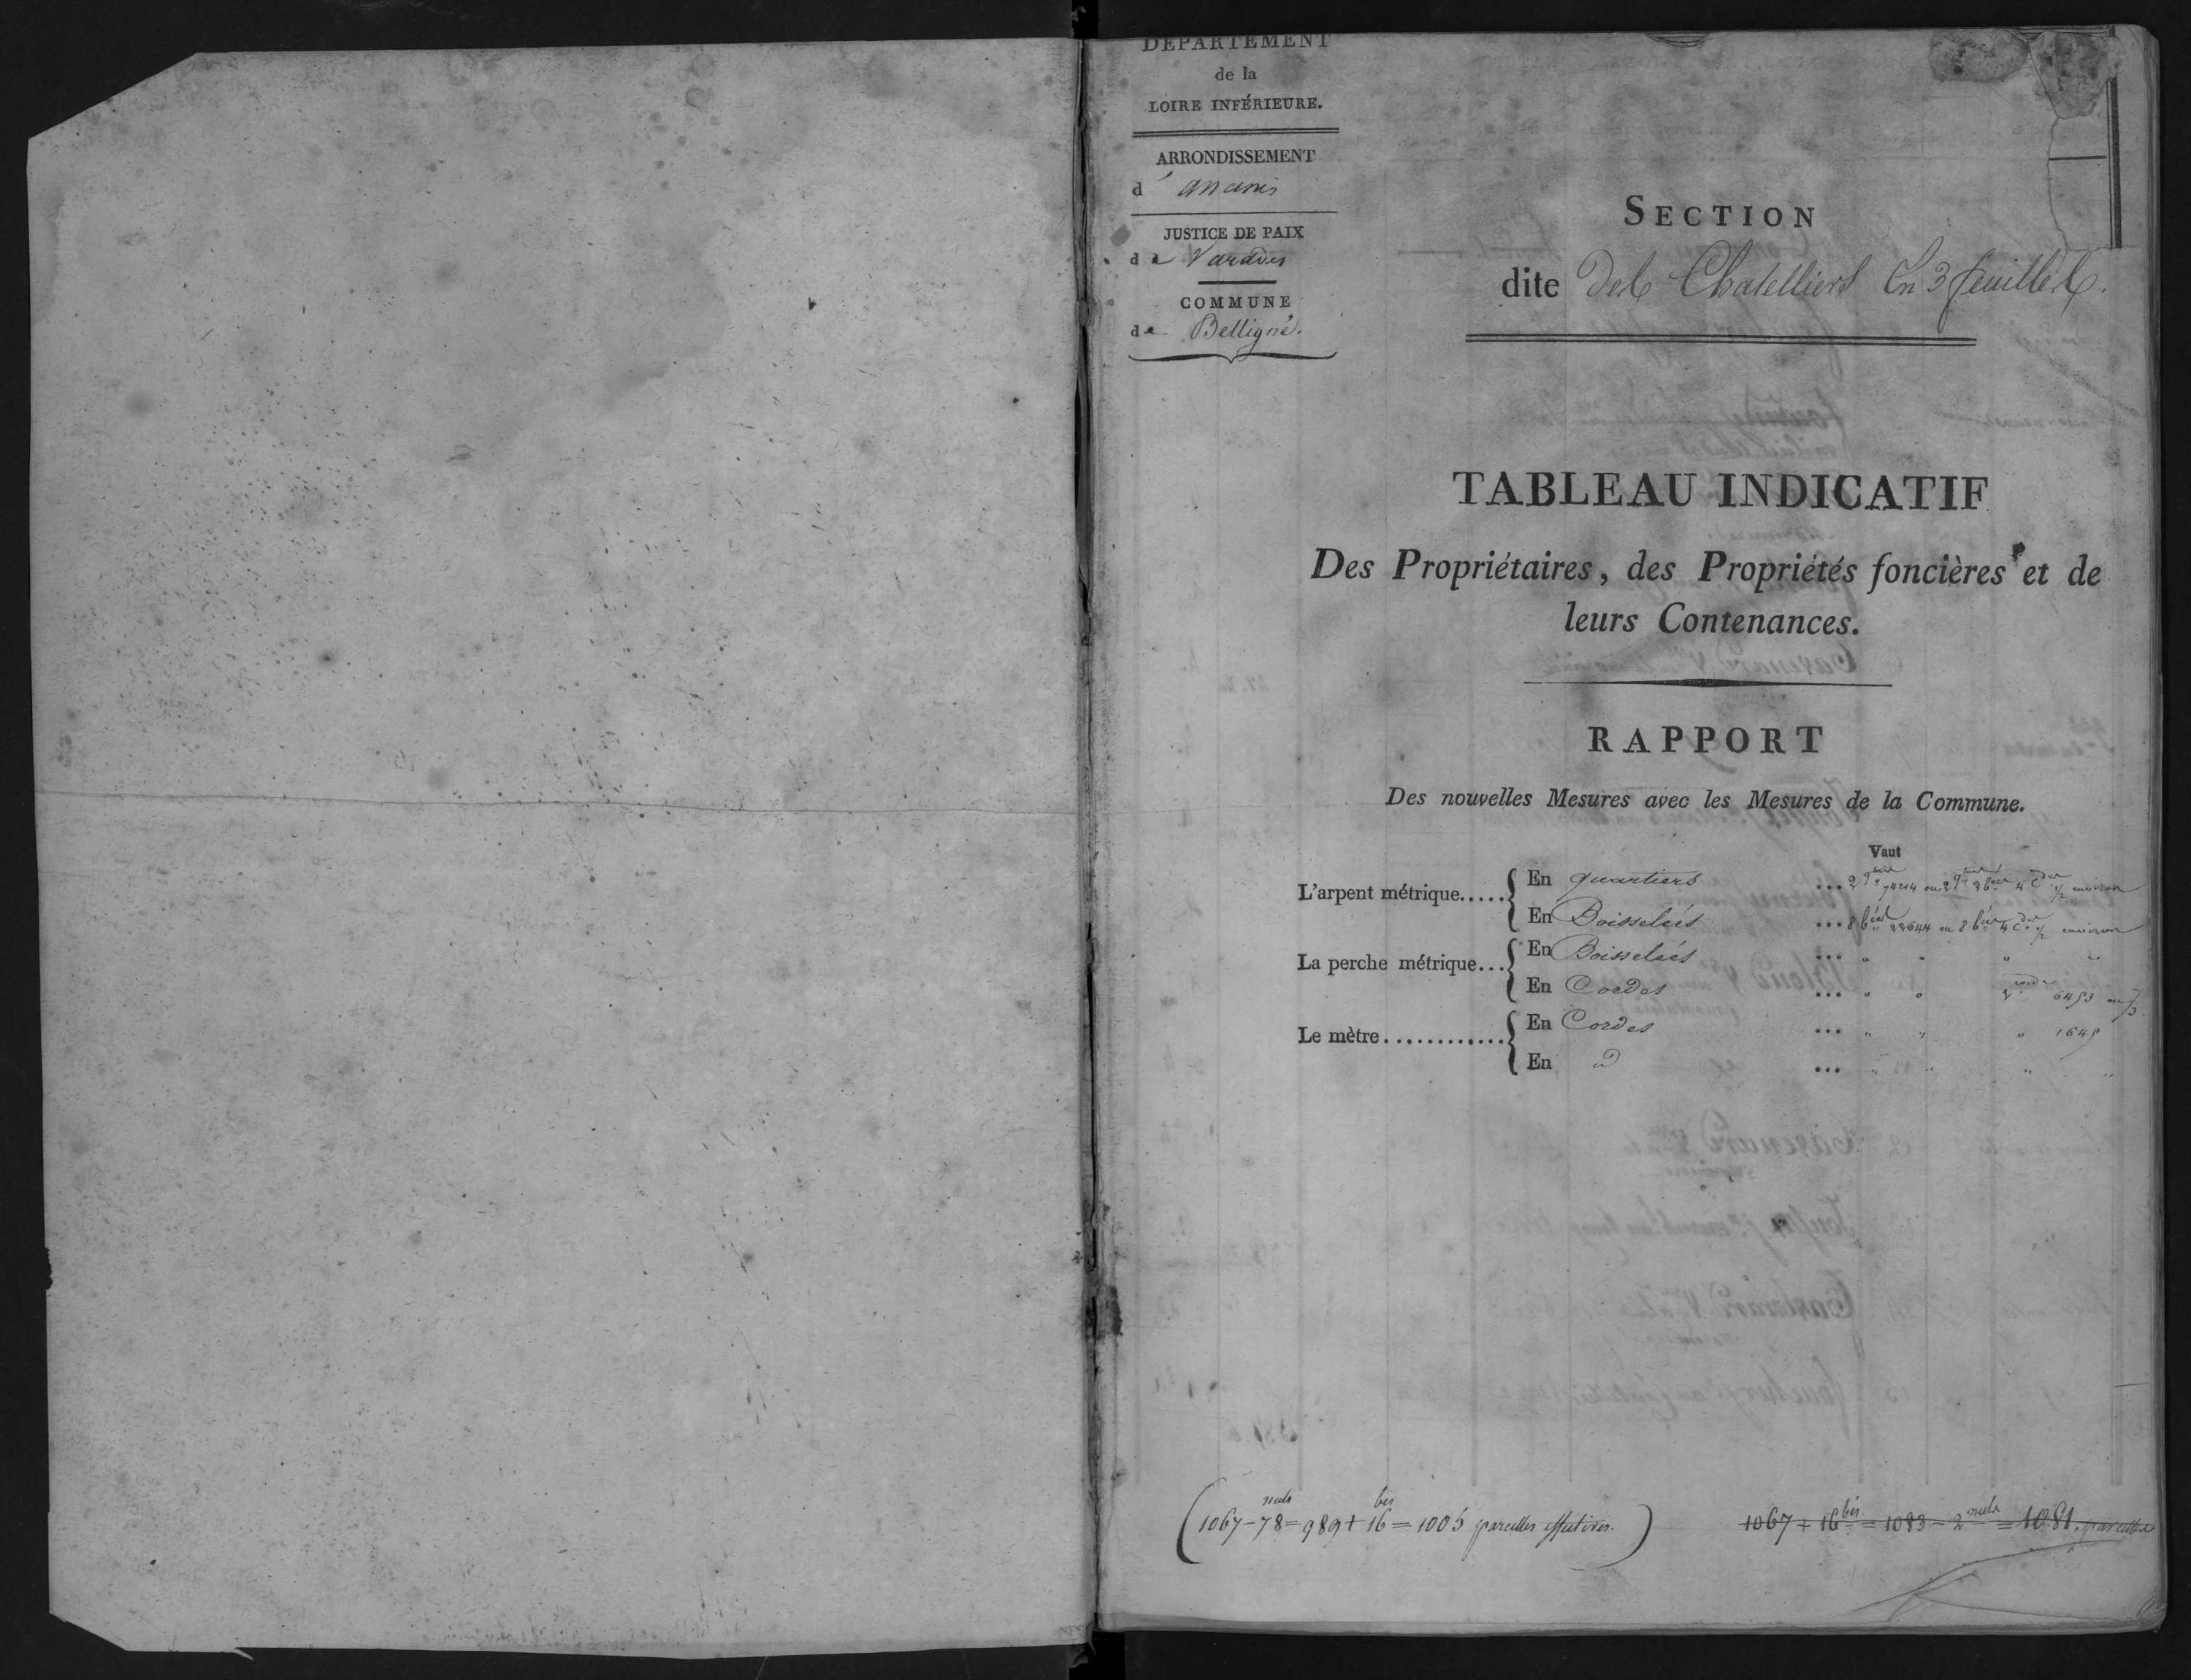 DÉPARTEMENT
de la
LOIRE INFÉRIEURE.
ARRONDISSEMENT
d'ancenis
JUSTICE DE PAIX
de Varades
COMMUNE
de Belligné.
SECTION
dite Des Chatelliers En 3 feuilles.
TABLEAU INDICATIF
Des Propriétaires, des Propriétés foncières et de
leurs Contenances.
RAPPORT
Des nouvelles Mesures avec les Mesures de la Commune.
Vaut
L'arpent métrique..... En quartiers ... environ
En Boisselées ... 8 22644 ou 8 4 1/2 environ
La perche métrique... En Boisselées ... " " " "
En Cordes ... " "
Le mètre............. En Cordes ... " " " 1645
En d ... " " " "
(1067 - 78 nuls = 989 + 16 bis = 1005 parcelles effectives.)
1067 + 16 bis = 1083 - 2 nuls = 1081. parcelles